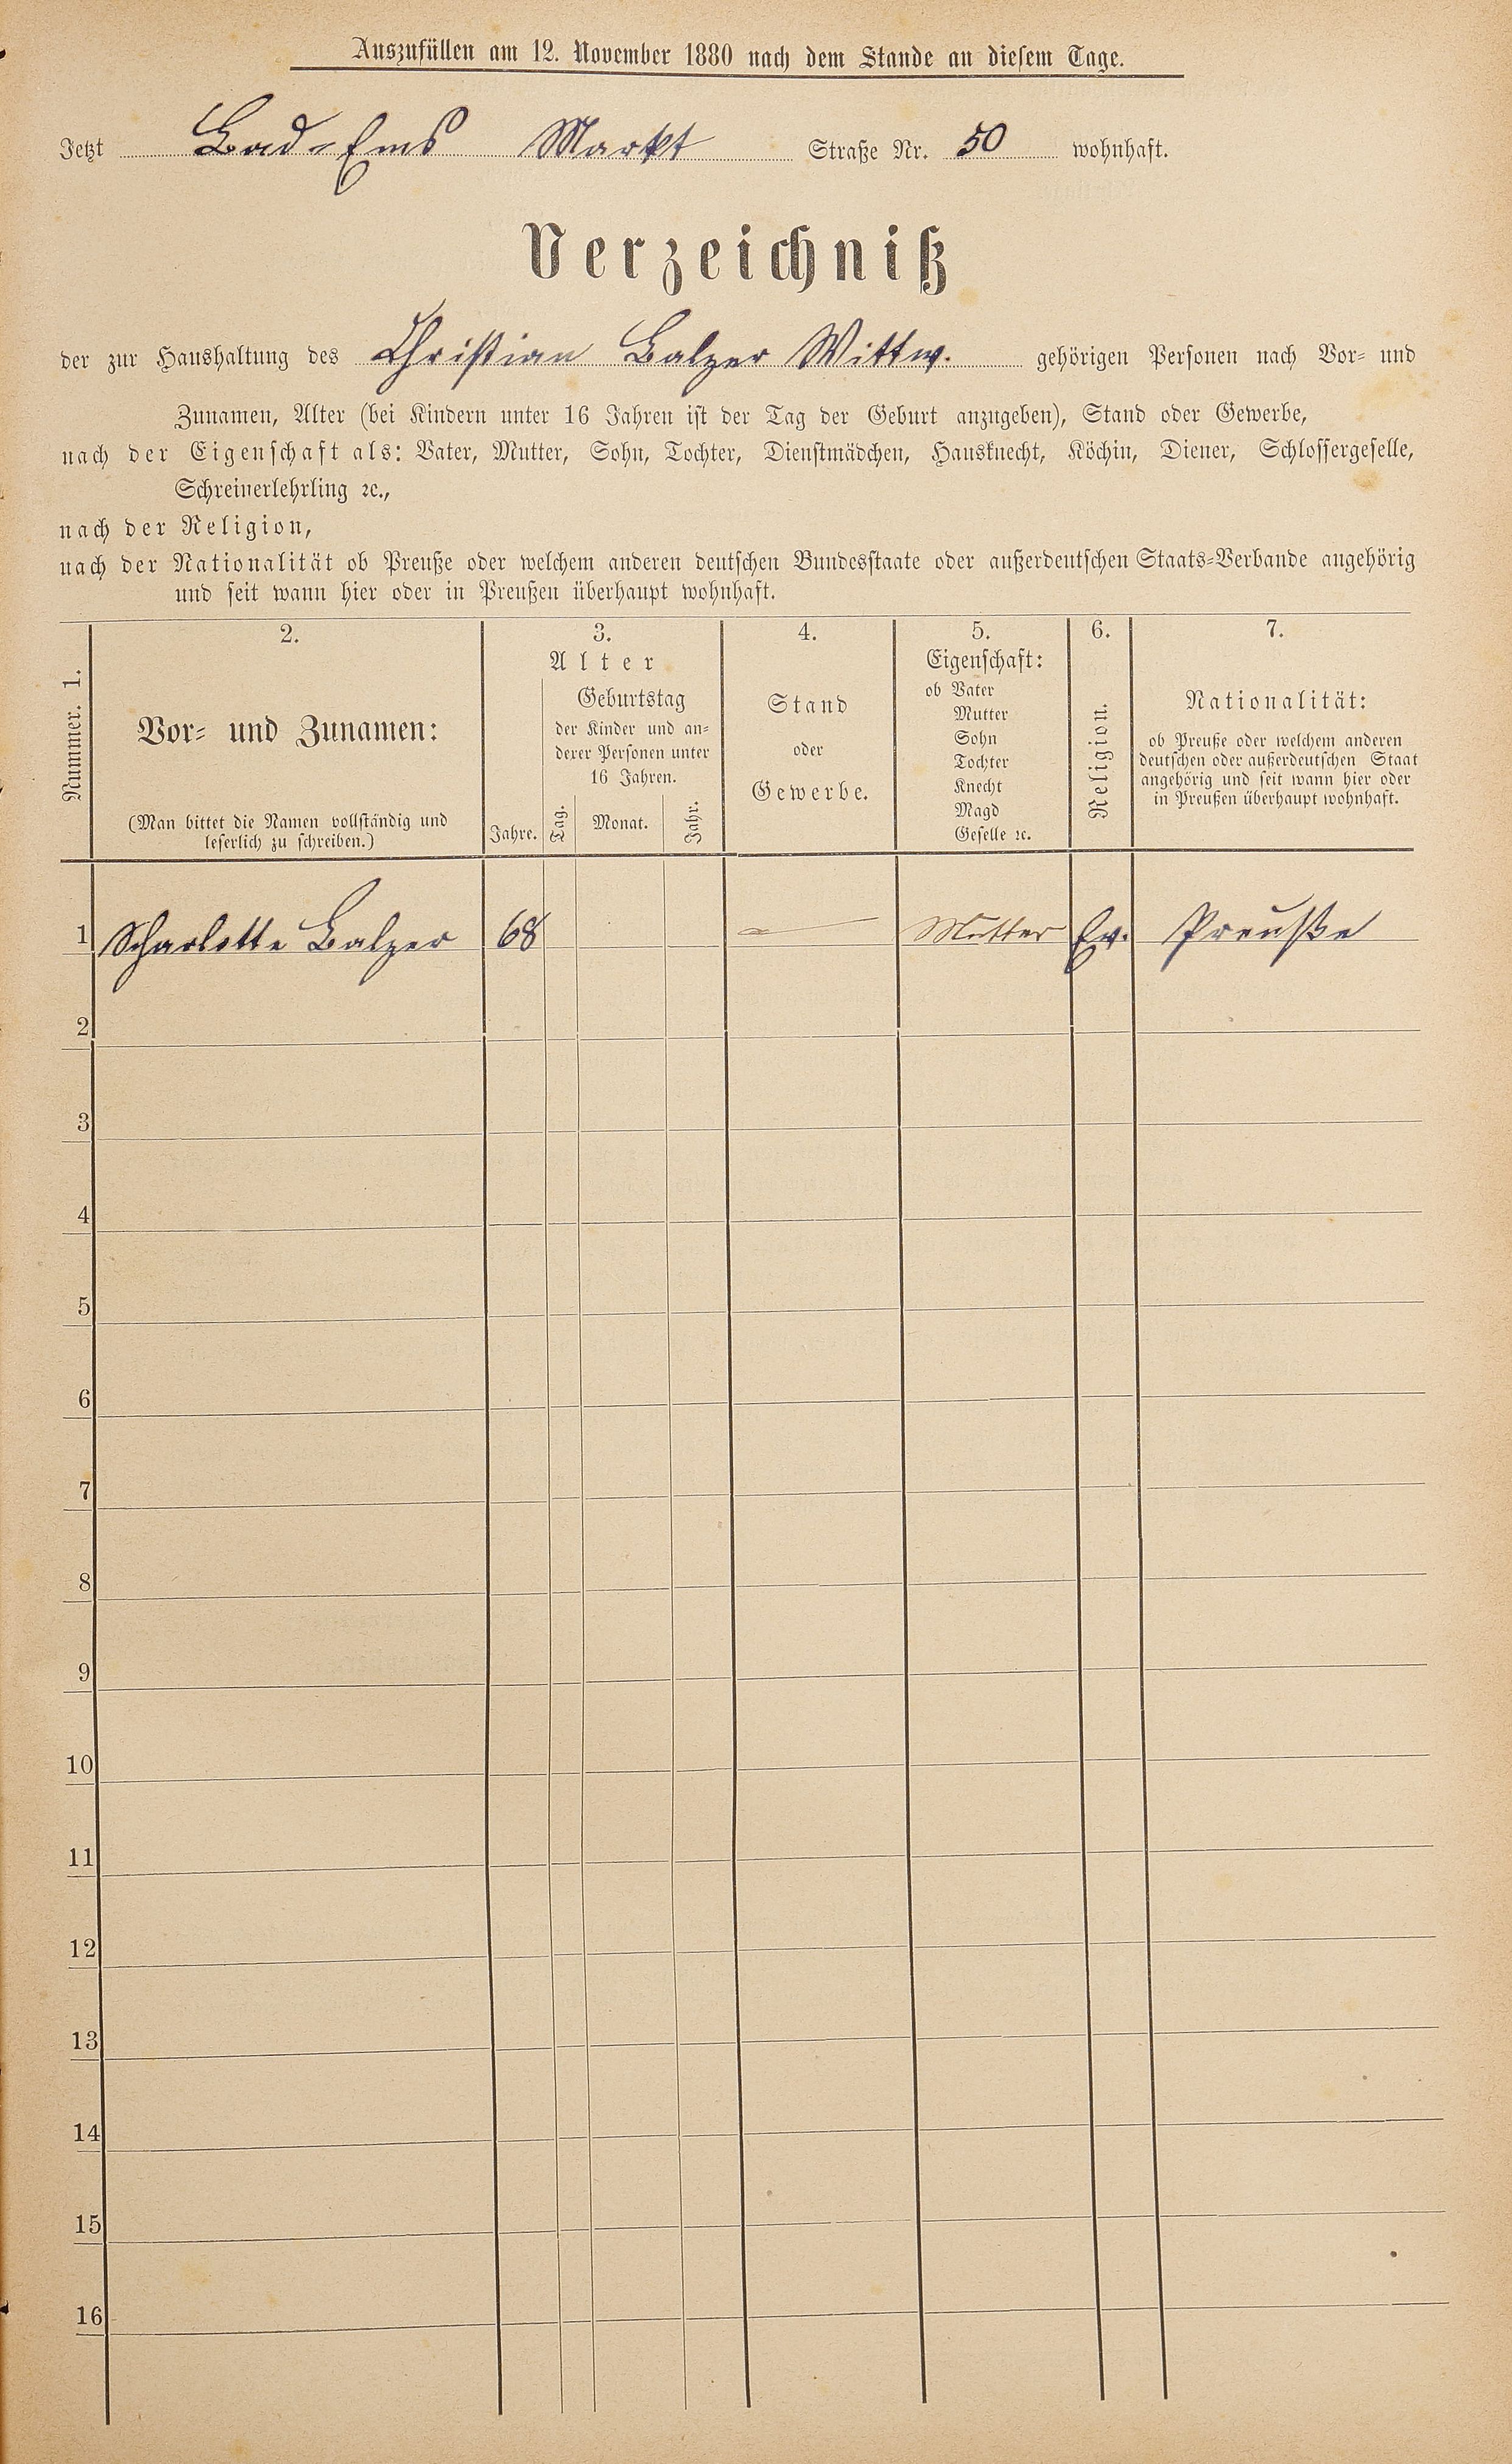 Auszufüllen am 12. November 1880 nach dem Stande an diesem Tage.
Jetzt Bad-Ems Markt Straße Nr. 50 wohnhaft.
Verzeichniß
der zur Haushaltung des Christian Balzer Wittw. gehörigen Personen nach Vor- und
Zunamen, Alter (bei Kindern unter 16 Jahren ist der Tag der Geburt anzugeben), Stand oder Gewerbe,
nach der Eigenschaft als: Vater, Mutter, Sohn, Tochter, Dienstmädchen, Hausknecht, Köchin, Diener, Schlossergeselle,
Schreinerlehrling ꝛc.,
nach der Religion,
nach der Nationalität ob Preuße oder welchem anderen deutschen Bundesstaate oder außerdeutschen Staats-Verbande angehörig
und seit wann hier oder in Preußen überhaupt wohnhaft.
Nummer. 1.
2.
Vor- und Zunamen:
(Man bittet die Namen vollständig und
leserlich zu schreiben.)
3.
Alter
Jahre.
Geburtstag
der Kinder und an-
derer Personen unter
16 Jahren.
Tag. Monat. Jahr.
4.
Stand
oder
Gewerbe.
5.
Eigenschaft:
ob Vater
Mutter
Sohn
Tochter
Knecht
Magd
Geselle ꝛc.
6.
Religion.
7.
Nationalität:
ob Preuße oder welchem anderen
deutschen oder außerdeutschen Staat
angehörig und seit wann hier oder
in Preußen überhaupt wohnhaft.
1 Scharlotte Balzer 68 — Mutter Ev. Preuße
2
3
4
5
6
7
8
9
10
11
12
13
14
15
16